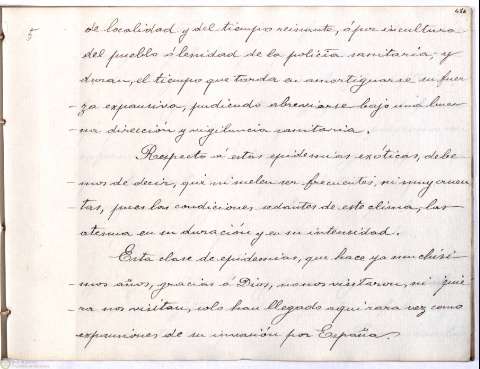 5
de localidad y del tiempo reinante, ó por incultura
del pueblo ó lenidad de la policía sanitaria; y
duran, el tiempo que tarda en amortiguarse su fuer
-za expansiva, pudiendo abreviarse bajo una bue
-na dirección y vigilancia sanitaria.
Respecto á estas epidemias exóticas, debe
-mos de decir, que ni suelen ser frecuentes, ni muy cruen
-tas, pues las condiciones de este clima, las
atenua en su duración y en su intensidad.
Esta clase de epidemias, que hace ya muchísi
-mos años, gracias á Dios, no nos visitaron, ni quie
-ra nos visitan, solo han llegado aquí rara vez como
expansiones de su invasión por España.